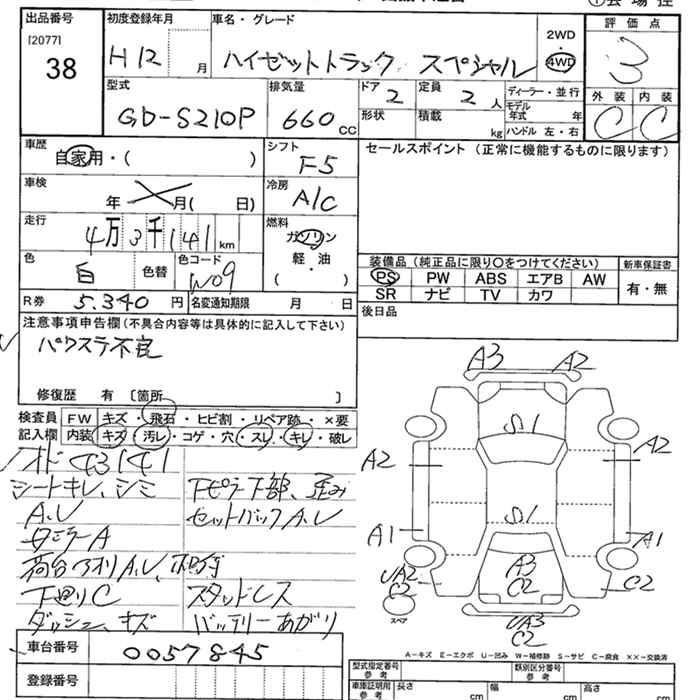 出品番号 初度登録年月 車名・グレード 評価点
[2077]
38
H12 月 ハイゼットトラック スペシャル 2WD・4WD 3
型式 排気量 ドア 定員 ディーラー・並行 外装 内装
GD-S210P 660 CC 2 2人 モデル年式 年 C C
形状 積載 kg ハンドル 左・右
車歴 シフト セールスポイント (正常に機能するものに限ります)
自家用・( ) F5
車検 冷房
年 月( 日) A/C
走行 燃料
4万3千141km ガソリン・軽油
( )
色 色替 色コード
白 W09
装備品 (純正品に限り〇をつけてください) 新車保証書
PS PW ABS エアB AW 有・無
SR ナビ TV カワ
R券 5.340円 名変通知期限 月 日
後日品
注意事項申告欄(不具合内容等は具体的に記入して下さい)
パワステ不良
修復歴 有 〔箇所 〕
検査員 FW キズ・飛石・ヒビ割・リペア跡・×要
記入欄 内装 キズ・汚レ・コゲ・穴・スレ・キレ・破レ
シートキレ、シミ
A.U
荷台アオリA.U、
下廻りC
ダッシュ、キズ
下部、歪み
セットバックA.U
スタッドレス
バッテリーあがり
A3 A2
S1
A2 A2
S1
A1 A1
UA2 C2
A3 C2
C2
UA3 C2
スペア
A-キズ E-エクボ U-凹み W-補修跡 S-サビ C-腐食 ××-交換済
車台番号 0057845
登録番号
型式指定番号 参考 類別区分番号 参考
車庫証明用 参考 長さ cm 幅 cm 高さ cm